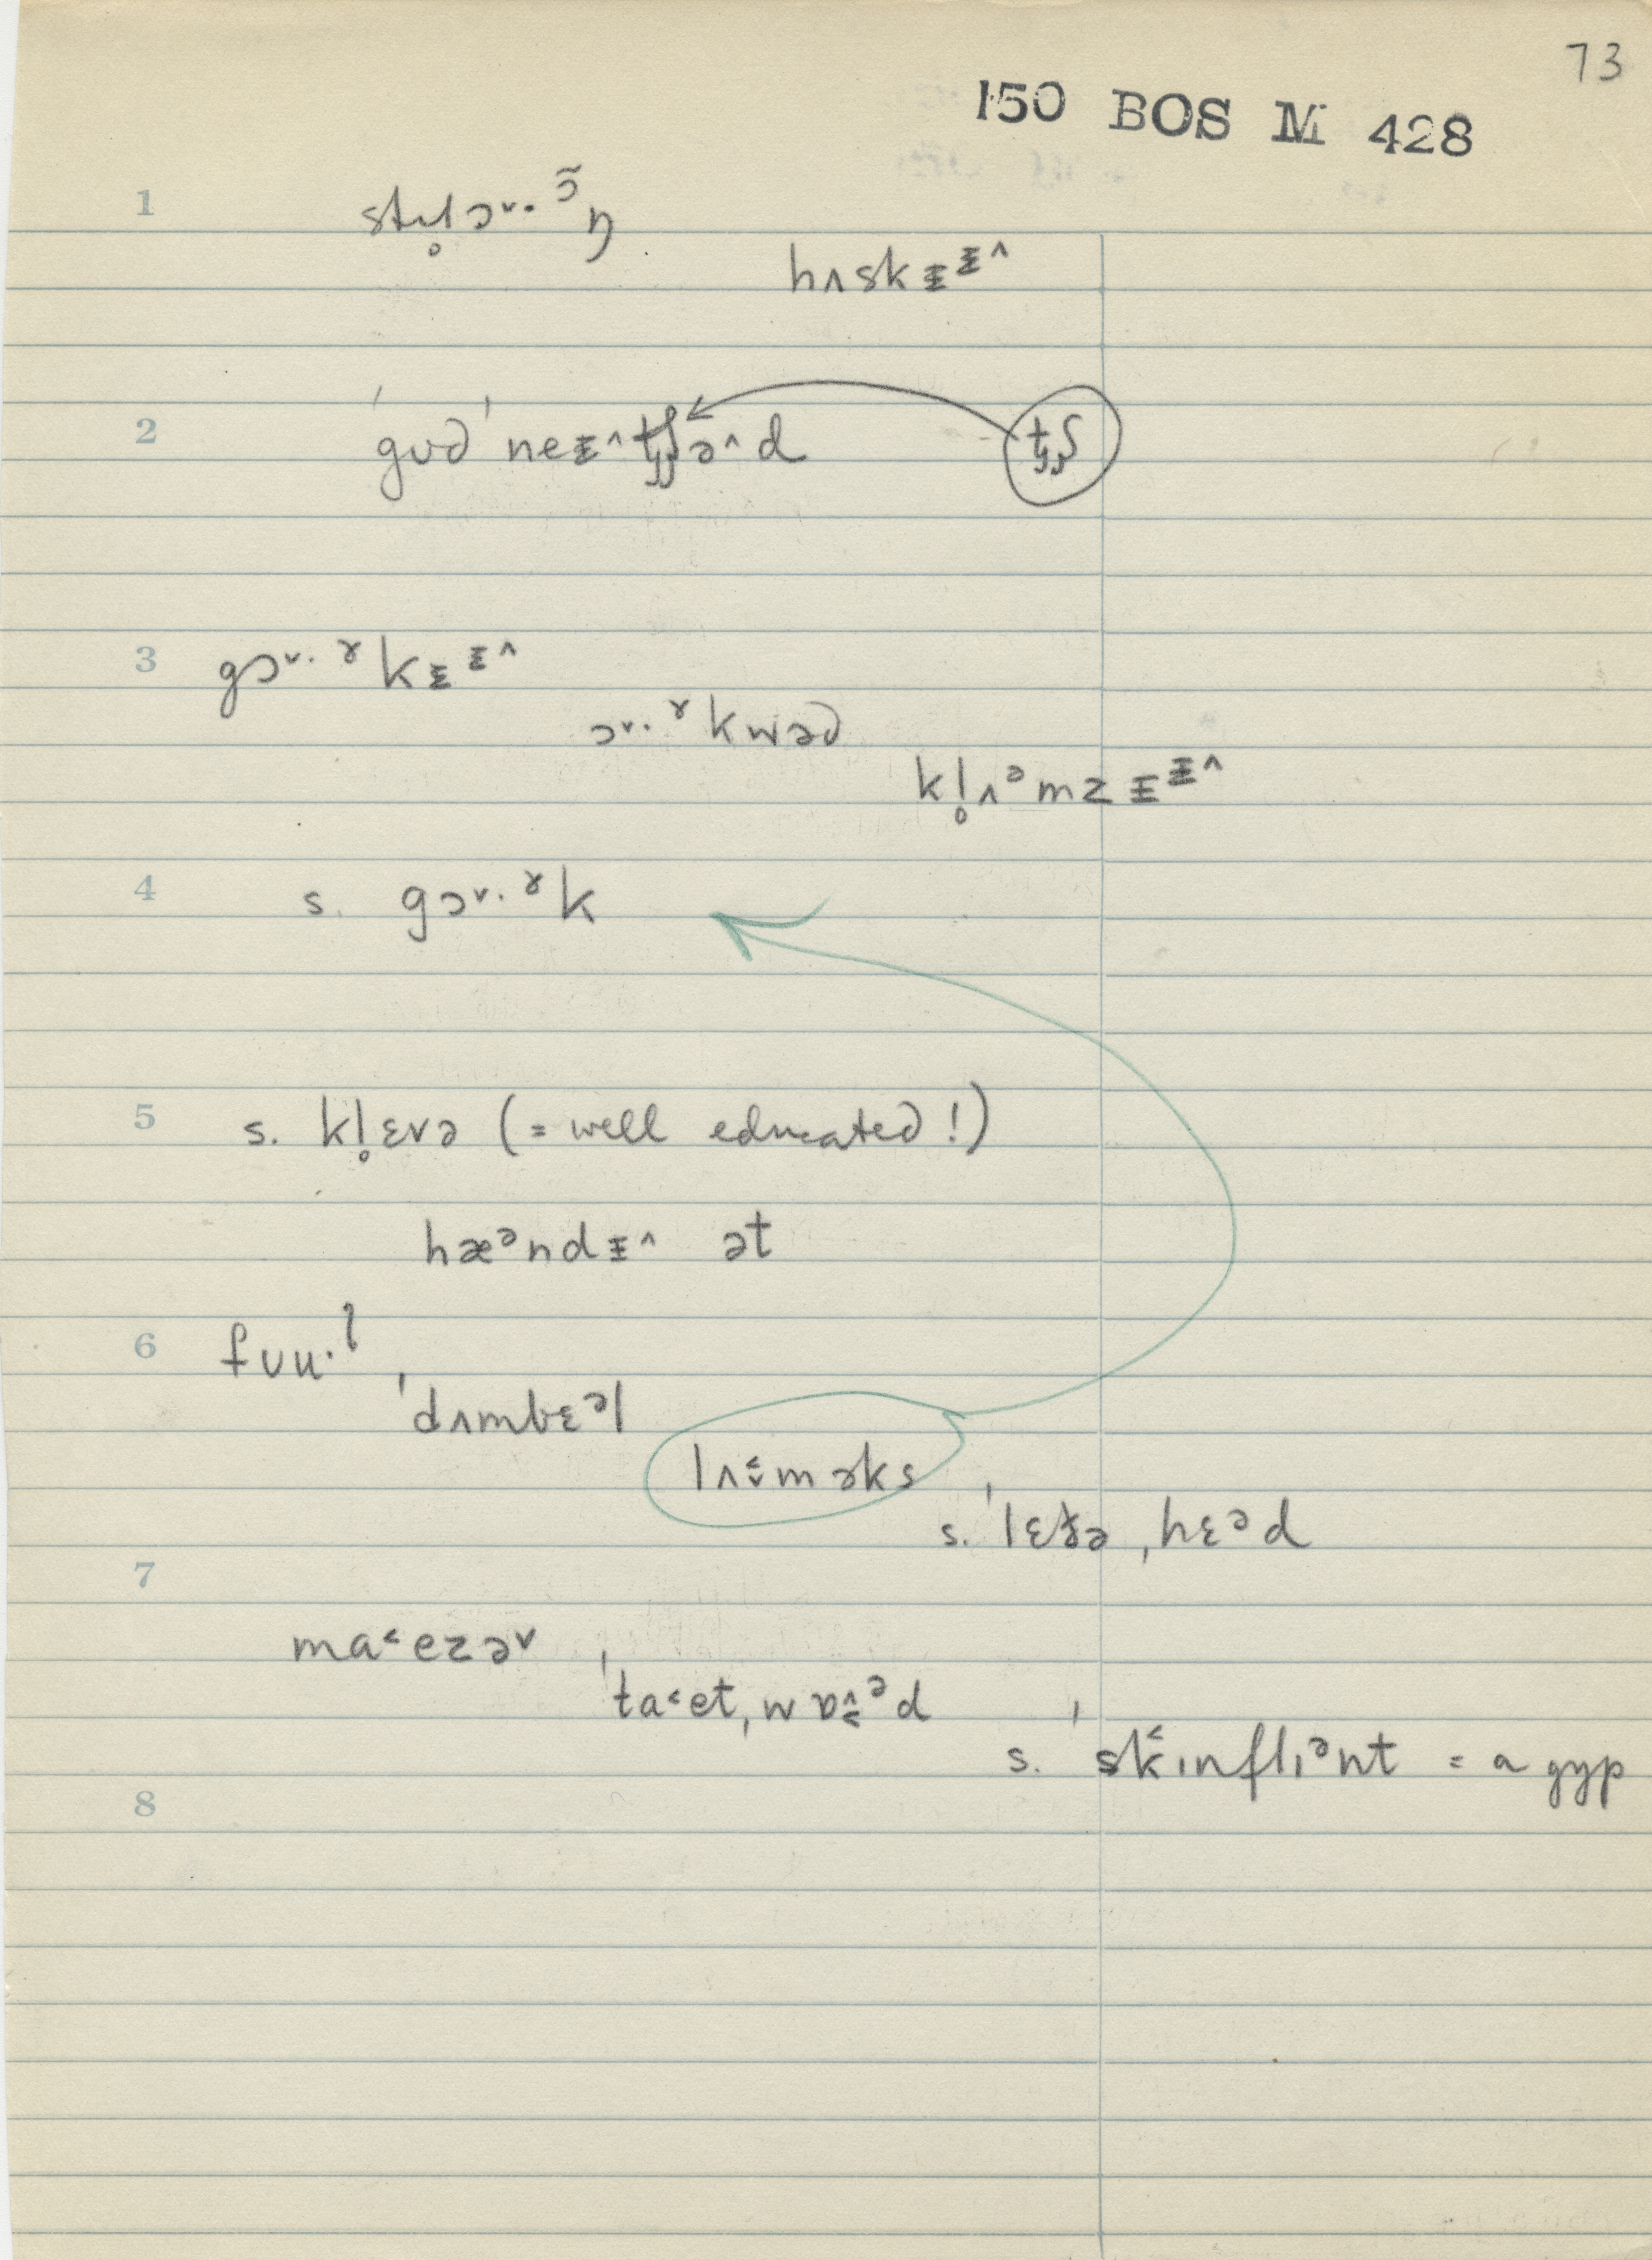 73
150 BOS M 428
1 stɹ̥ɔ˅·ɔ̃ŋ
hʌskɪ̵ɪ̵^
2 ˈgʊd ˈneɪ̵^tʃə^d tʃ
3 gɔ˅·ɤkɪ̵ɪ̵^
ɔ˅·ɤkwəd
kl̥ʌᵊmzɪ̵ɪ̵^
4 s. gɔ˅·ɤk
5 s. kl̥ɛvə (= well educated!)
hæᵊndɪ̵^ ət
6 fʊu·l
ˈdʌmbɛᵊl
lʌməks
7 s. ˈlɛt̬ə ˌhɛᵊd
ma˂ezə˅
ˈta˂et ˌwɒᵊd
s. ˈsk̂ɪnflɪᵊnt = a gyp
8